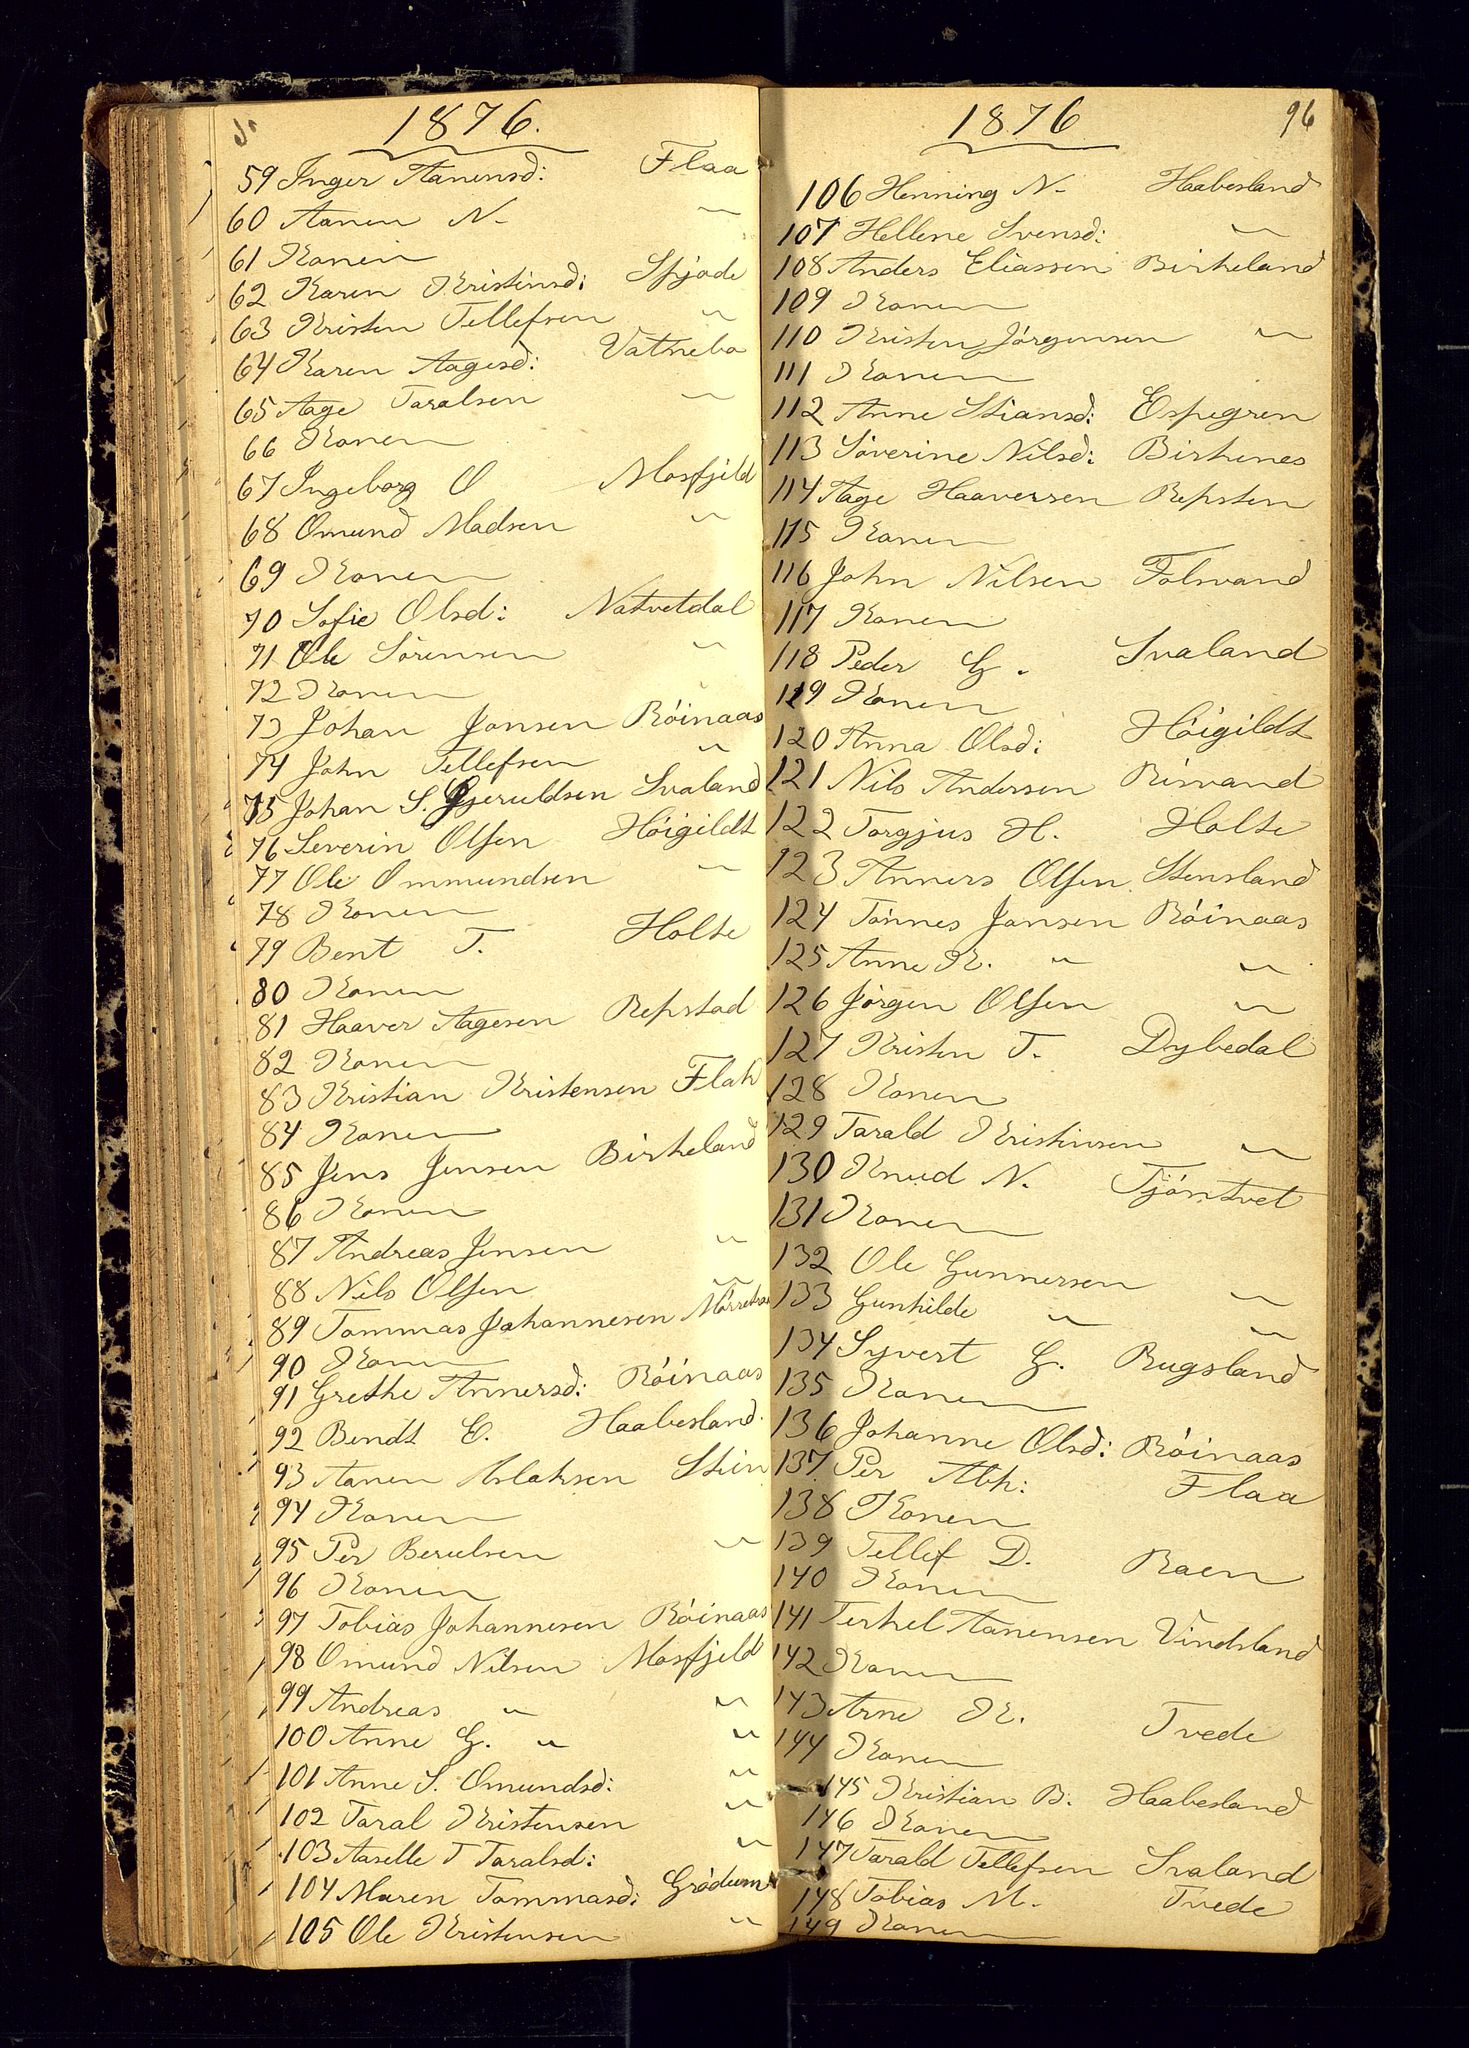 1876.
59 Inger Aanensd: Flaa
60 Aanen N. "
61 Konen
62 Karen Kristensd: Spjode
63 Kristen Tellefsen "
64 Karen Aagesd: Vatnebo
65 Aage Taralsen "
66 Konen
67 Ingeborg O Mosfjeld
68 Omund Madsen "
69 Konen
70 Sofie Olsd: Natvetdal
71 Ole Sørensen "
72 Konen "
73 Johan Jonsen Róinaas
74 John Tellefsen "
75 Johan S. Gjeruldsen Svaland
76 Severin Olsen Hóigildt
77 Ole Ommundsen "
78 Konen
79 Bent T. Holte
80 Konen
81 Haaver Aagesen Repstad
82 Konen
83 Kristian Kristensen Flak
84 Konen
85 Jens Jensen Birkeland
86 Konen
87 Andreas Jensen "
88 Nils Olsen "
89 Tommas Johannesen
90 Konen
91 Grethe Annersd: Róinaas
92 Bendt E. Haabesland.
93 Aanen Aslaksen Stien
94 Konen
95 Per Berulsen "
96 Konen
97 Tobias Johannesen Róinaas
98 Omund Nilsen Mosfjeld
99 Andreas " "
100 Anne G. " "
101 Anne S. Omundsd: "
102 Taral Kristensen "
103 Aaselle T Taralsd: "
104 Maren Tommasd: Grødum
105 Ole Kristensen "
1876
96
106 Henning N. Haabesland
107 Hellene Svensd: "
108 Anders Eliassen Birkeland
109 Konen
110 Kristen Jørgensen "
111 Konen
112 Anne Stiansd: Espegren
113 Sóverine Nilsd: Birkenes
114 Aage Haaversen Repsten
115 Konen
116 John Nilsen Folvand
117 Konen
118 Peder G. Svaland
119 Konen
120 Anna Olsd: Hóigildt
121 Nils Andersen Risvand
122 Torgjus H. Holte
123 Anners Olsen Stensland
124 Tónnes Jonsen Róinaas
125 Anne K. " "
126 Jørgen Olsen "
127 Kristen T. Dybedal
128 Konen
129 Tarald Kristensen "
130 Knud N. Tjóntvet
131 Konen
132 Ole Gunnersen "
133 Gunhilde " "
134 Syvert G. Rugsland
135 Konen
136 Johanne Olsd: Róinaas
137 Per Abh: Flaa
138 Konen
139 Tellef D. Raen
140 Konen
141 Terkel Aanensen Vindsland
142 Konen
143 Arne K. Tvede
144 Konen
145 Kristian B. Haabesland
146 Konen
147 Tarald Tellefsen Svaland
148 Tobias M. Tvede
149 Konen